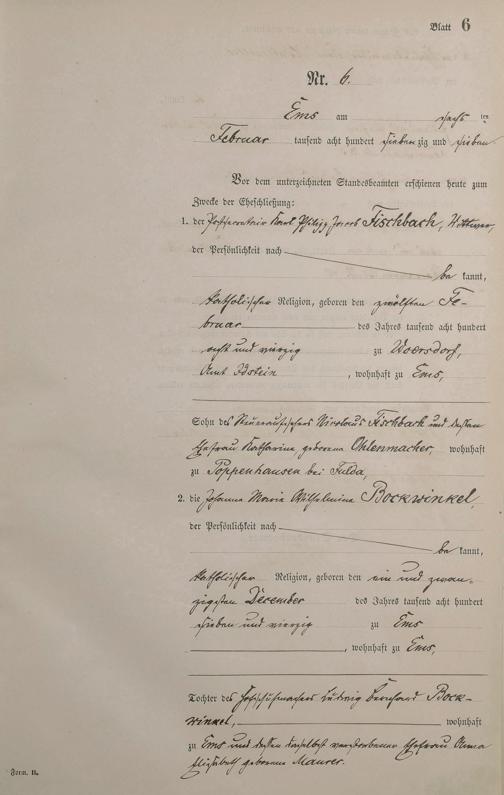 Blatt 6
Nr. 6.
Ems am sechs ten
Februar tausend acht hundert siebenzig und sieben
Vor dem unterzeichneten Standesbeamten erschienen heute zum
Zwecke der Eheschließung:
1. der Postsecretair Karl Philipp Jacob Fischbach, Wittwer,
der Persönlichkeit nach
be kannt,
katholischer Religion, geboren den zwölften Fe-
bruar des Jahres tausend acht hundert
acht und vierzig zu Woersdorf,
Amt Idstein, wohnhaft zu Ems,
Sohn des Steueraufsehers Nicolaus Fischbach und dessen
Ehefrau Katharina, geborene Ohlenmacher, wohnhaft
zu Poppenhausen bei Fulda,
2. die Johanna Maria Wilhelmina Bockwinkel,
der Persönlichkeit nach
be kannt,
katholischer Religion, geboren den ein und zwan-
zigsten December des Jahres tausend acht hundert
sieben und vierzig zu Ems
, wohnhaft zu Ems,
Tochter des Hofschuhmachers Ludwig Bernhard Bock-
winkel, wohnhaft
zu Ems und dessen daselbst verstorbener Ehefrau Anna
Elisabeth geborene Maurer.
Form. B.